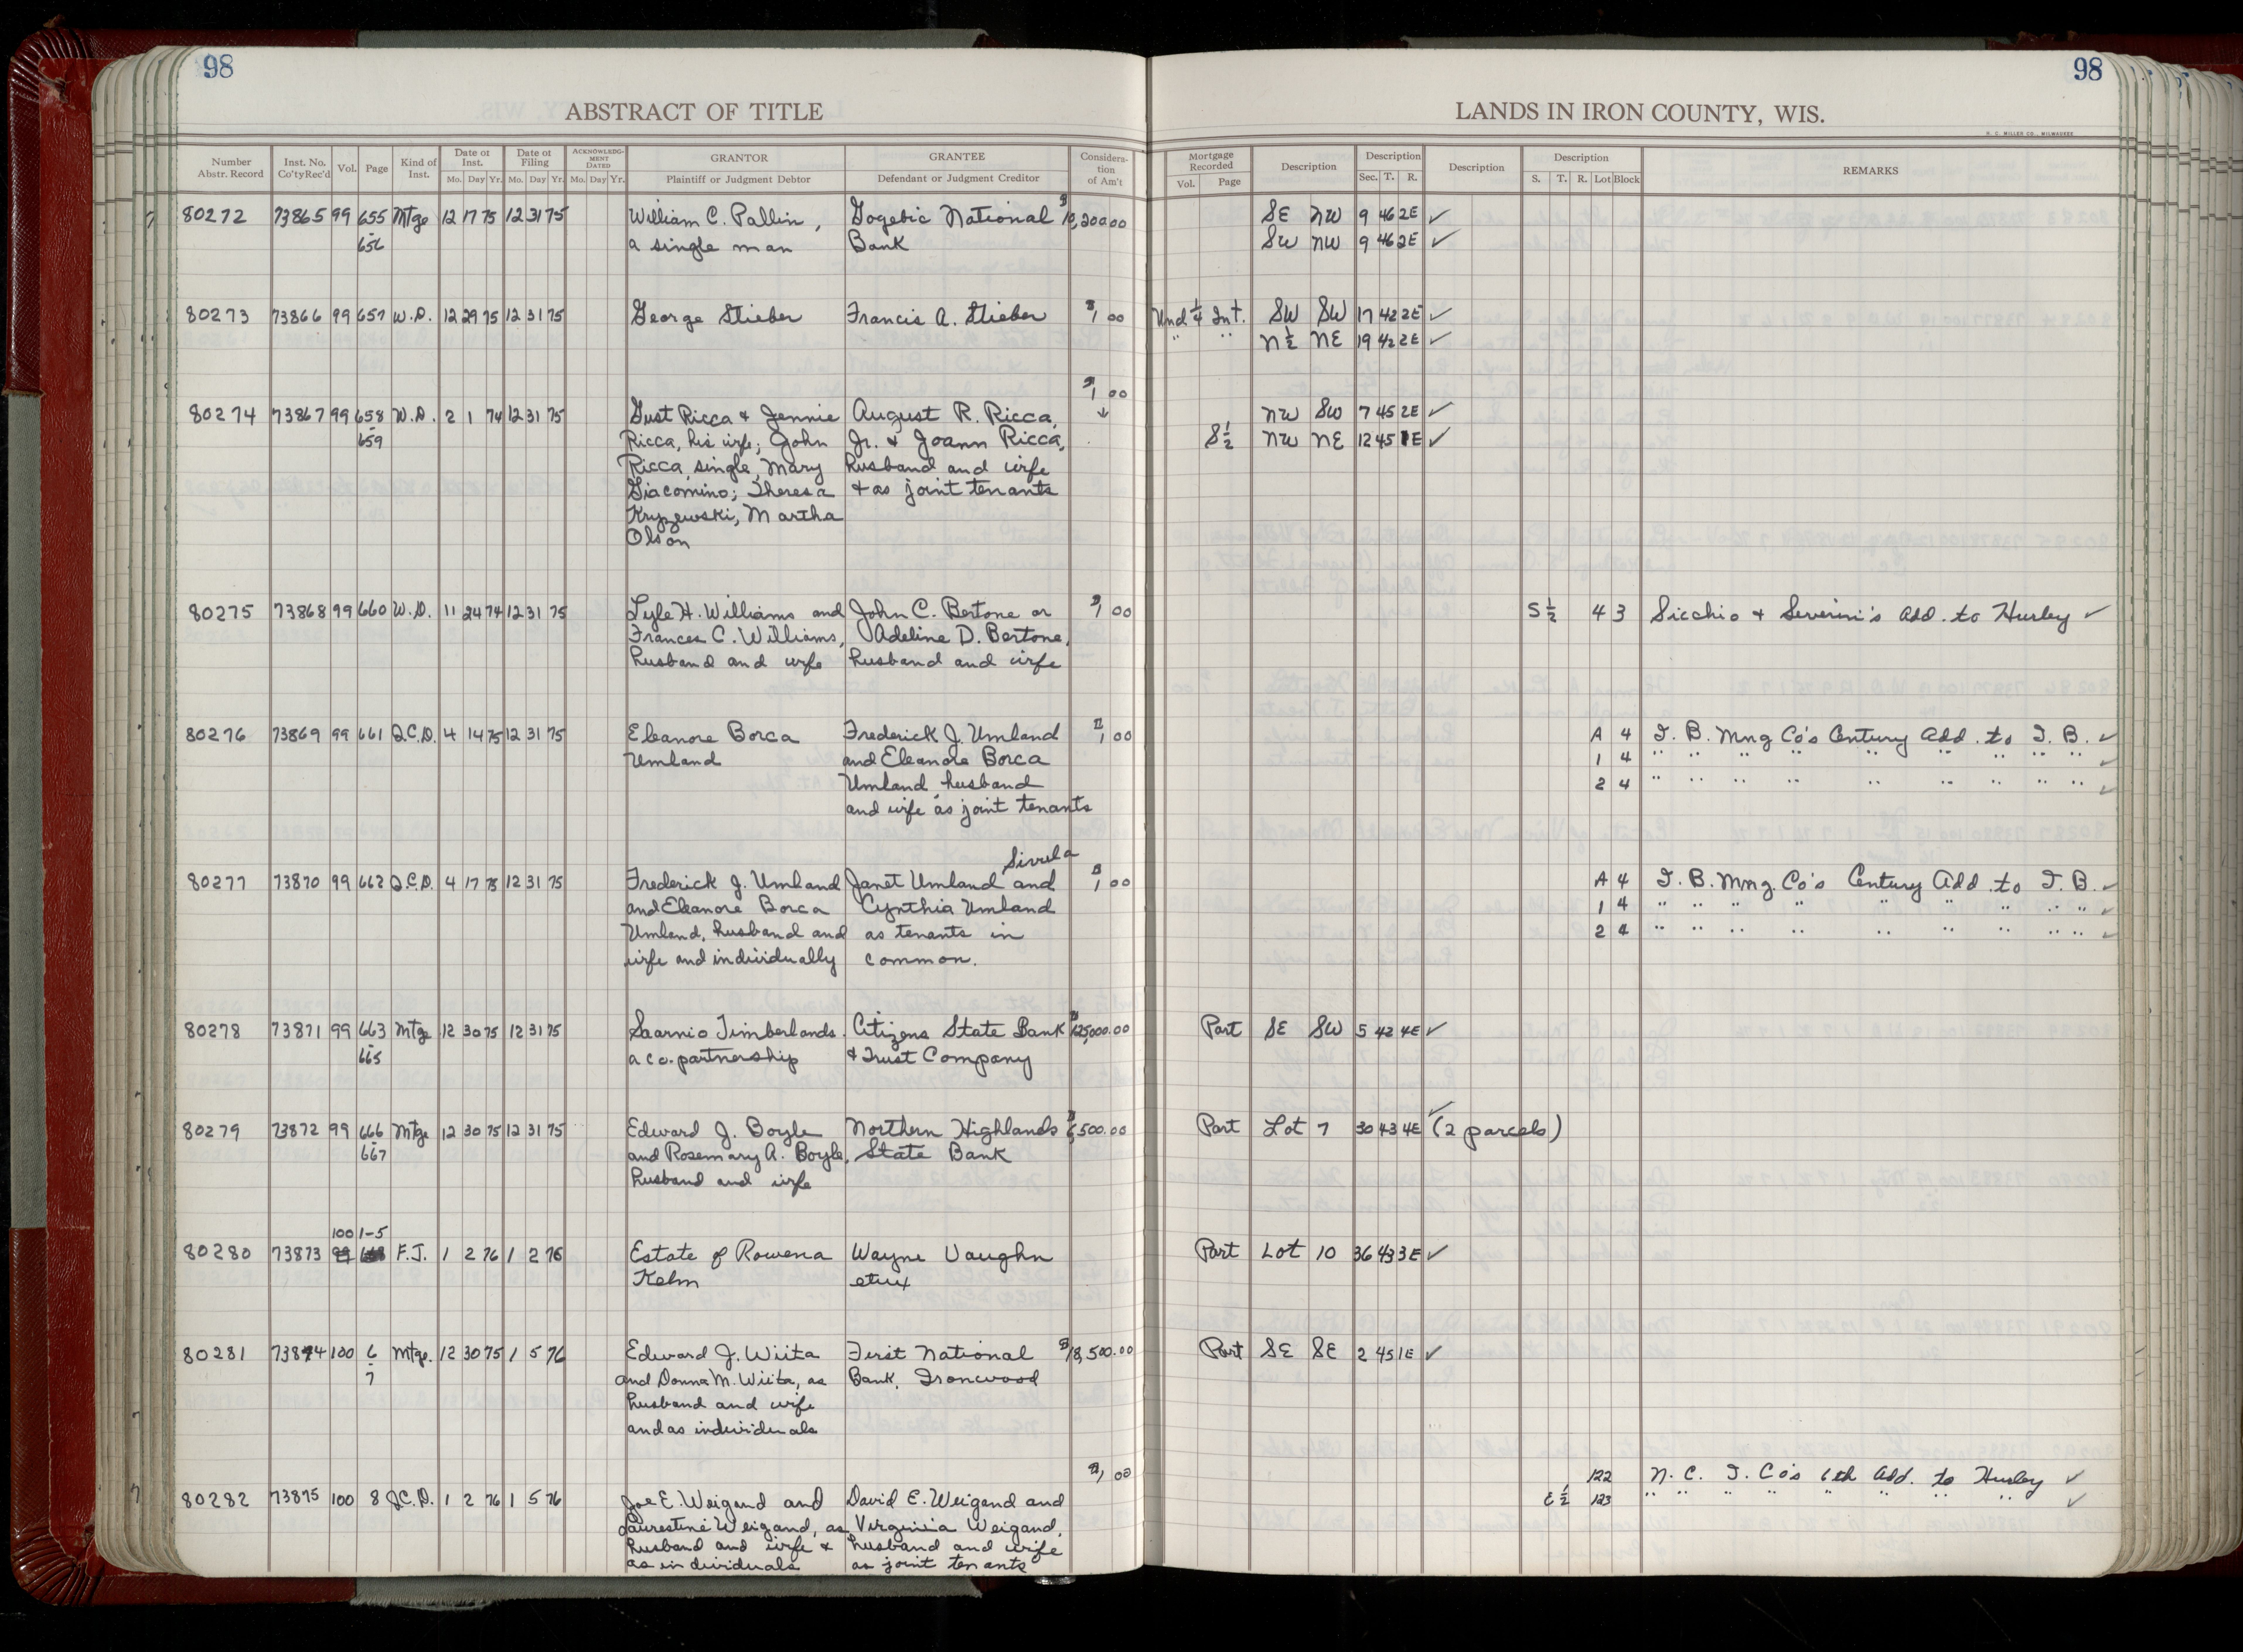 98
98
ABSTRACT OF TITLE
LANDS IN IRON COUNTY, WIS.
Number Abstr. Record | Inst. No. Co'ty Rec'd | Vol. | Page | Kind of Inst. | Date of Inst. Mo. Day Yr. | Date of Filing Mo. Day Yr. | ACKNOWLEDGMENT DATED Mo. Day Yr. | GRANTOR Plaintiff or Judgment Debtor | GRANTEE Defendant or Judgment Creditor | Consideration of Am't | Mortgage Recorded Vol. Page | Description | Description Sec. T. R. | Description | Description S. T. R. Lot Block | REMARKS
80272 73865 99 655 Mtge 12 17 75 12 31 75 William C. Pallin, Gogebic National $10,200.00 SE NW 9 46 2E ✓
-656 a single man Bank SW NW 9 46 2E ✓
80273 73866 99 657 W.D. 12 29 75 12 31 75 George Stieber Francis A. Stieber $1,00 Und 1/4 Int. SW SW 17 42 2E ✓
" " N½ NE 19 42 2E ✓
$1,00
80274 73867 99 658 W.D. 2 1 74 12 31 75 Gust Ricca & Jennie August R. Ricca, ↓ NW SW 7 45 2E ✓
-659 Ricca, his wife; John Jr. & Joann Ricca, S½ NW NE 12 45 1E ✓
Ricca, single, Mary husband and wife
Giacomino; Theresa & as joint tenants
Kryzewski, Martha
Olson
80275 73868 99 660 W.D. 11 24 74 12 31 75 Lyle H. Williams and John C. Bertone or $1,00 S½ 4 3 Sicchio & Severini's Add. to Hurley ✓
Frances C. Williams, Adeline D. Bertone,
husband and wife husband and wife
80276 73869 99 661 Q.C.D. 4 14 75 12 31 75 Eleanore Borca Frederick J. Umland $1,00 A 4 I. B. Mng Co's Century Add. to I. B. ✓
Umland and Eleanore Borca 1 4 " " " " " " " " " ✓
Umland, husband 2 4 " " " " " " " " " ✓
and wife as joint tenants
Sivula
80277 73870 99 662 Q.C.D. 4 17 75 12 31 75 Frederick J. Umland Janet Umland and $1,00 A 4 I. B. Mng. Co's Century Add. to I. B. ✓
and Eleanore Borca Cynthia Umland 1 4 " " " " " " " " " ✓
Umland, husband and as tenants in 2 4 " " " " " " " " " ✓
wife and individually common.
80278 73871 99 663 Mtge 12 30 75 12 31 75 Saarnio Timberlands. Citizens State Bank $125,000.00 Part SE SW 5 42 4E ✓
-665 a co. partnership & Trust Company
80279 73872 99 666 Mtge 12 30 75 12 31 75 Edward J. Boyle Northern Highlands 500.00 Part Lot 7 30 43 4E ✓ (2 parcels)
-667 and Rosemary A. Boyle, State Bank
husband and wife
100 1-5
80280 73873 99 F.J. 1 2 76 1 2 76 Estate of Rowena Wayne Vaughn Part Lot 10 36 43 3E ✓
Kelm etux
80281 73874 100 6 Mtge. 12 30 75 1 5 76 Edward J. Wiita First National $18,500.00 Part SE SE 2 45 1E ✓
-7 and Donna M. Wiita, as Bank, Ironwood
husband and wife
and as individuals
$1,00 122 N. C. I. Co's 6th Add. to Hurley ✓
80282 73875 100 8 Q.C.D. 1 2 76 1 5 76 Joe E. Weigand and David E. Weigand and E½ 123 " " " " " " " " ✓
Laurestine Weigand, as Virginia Weigand,
husband and wife & husband and wife
as individuals as joint tenants